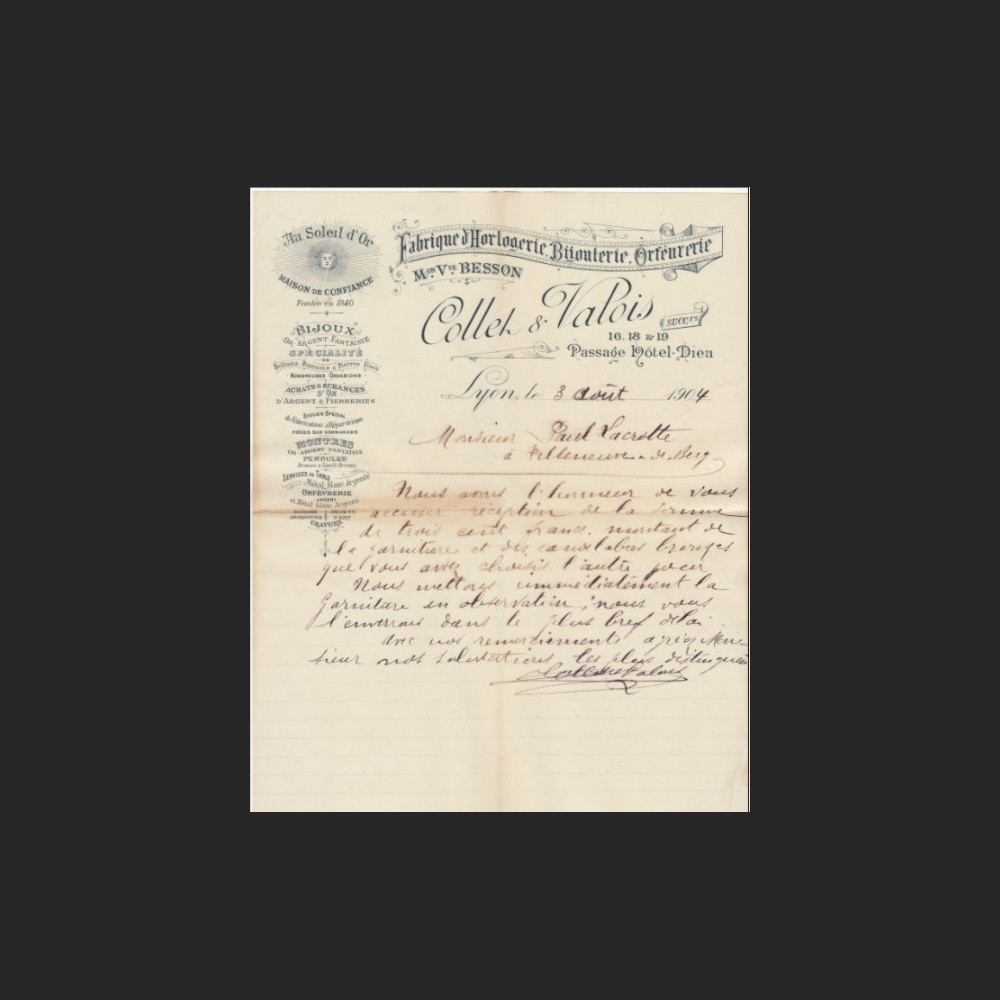 Au Soleil d'Or
MAISON DE CONFIANCE
Fondée en 1840
BIJOUX
OR, ARGENT FANTAISIE
SPÉCIALITÉ
DE
NOMBREUSES OCCASIONS
ACHATS & ÉCHANGES
D'OR
D'ARGENT & PIERRERIES
ATELIER SPÉCIAL
de Fabrication & Réparations
PIÈCES SUR COMMANDES
MONTRES
OR, ARGENT FANTAISIE
PENDULES
SERVICES DE TABLE
Métal blanc Argenté
ORFÈVRERIE
ARGENT
et Métal blanc Argenté
GRAVURE
Fabrique d'Horlogerie, Bijouterie, Orfèvrerie
Mon Vve BESSON
Collet & Valois
SUCCrs
16, 18 & 19
Passage Hôtel-Dieu
Lyon, le 3 Août 1904
Monsieur Paul Lacrotte
à Villeneuve-de-Berg
Nous avons l'honneur de vous
accuser réception de la somme
de trois cent francs, montant de
la garniture et des candélabres bronzes
que vous avez choisis l'autre jour
Nous mettons immédiatement la
garniture en observation; nous vous
l'enverrons dans le plus bref délai
Avec nos remerciements agréez Mon
sieur nos salutations les plus distinguées
Collet & Valois